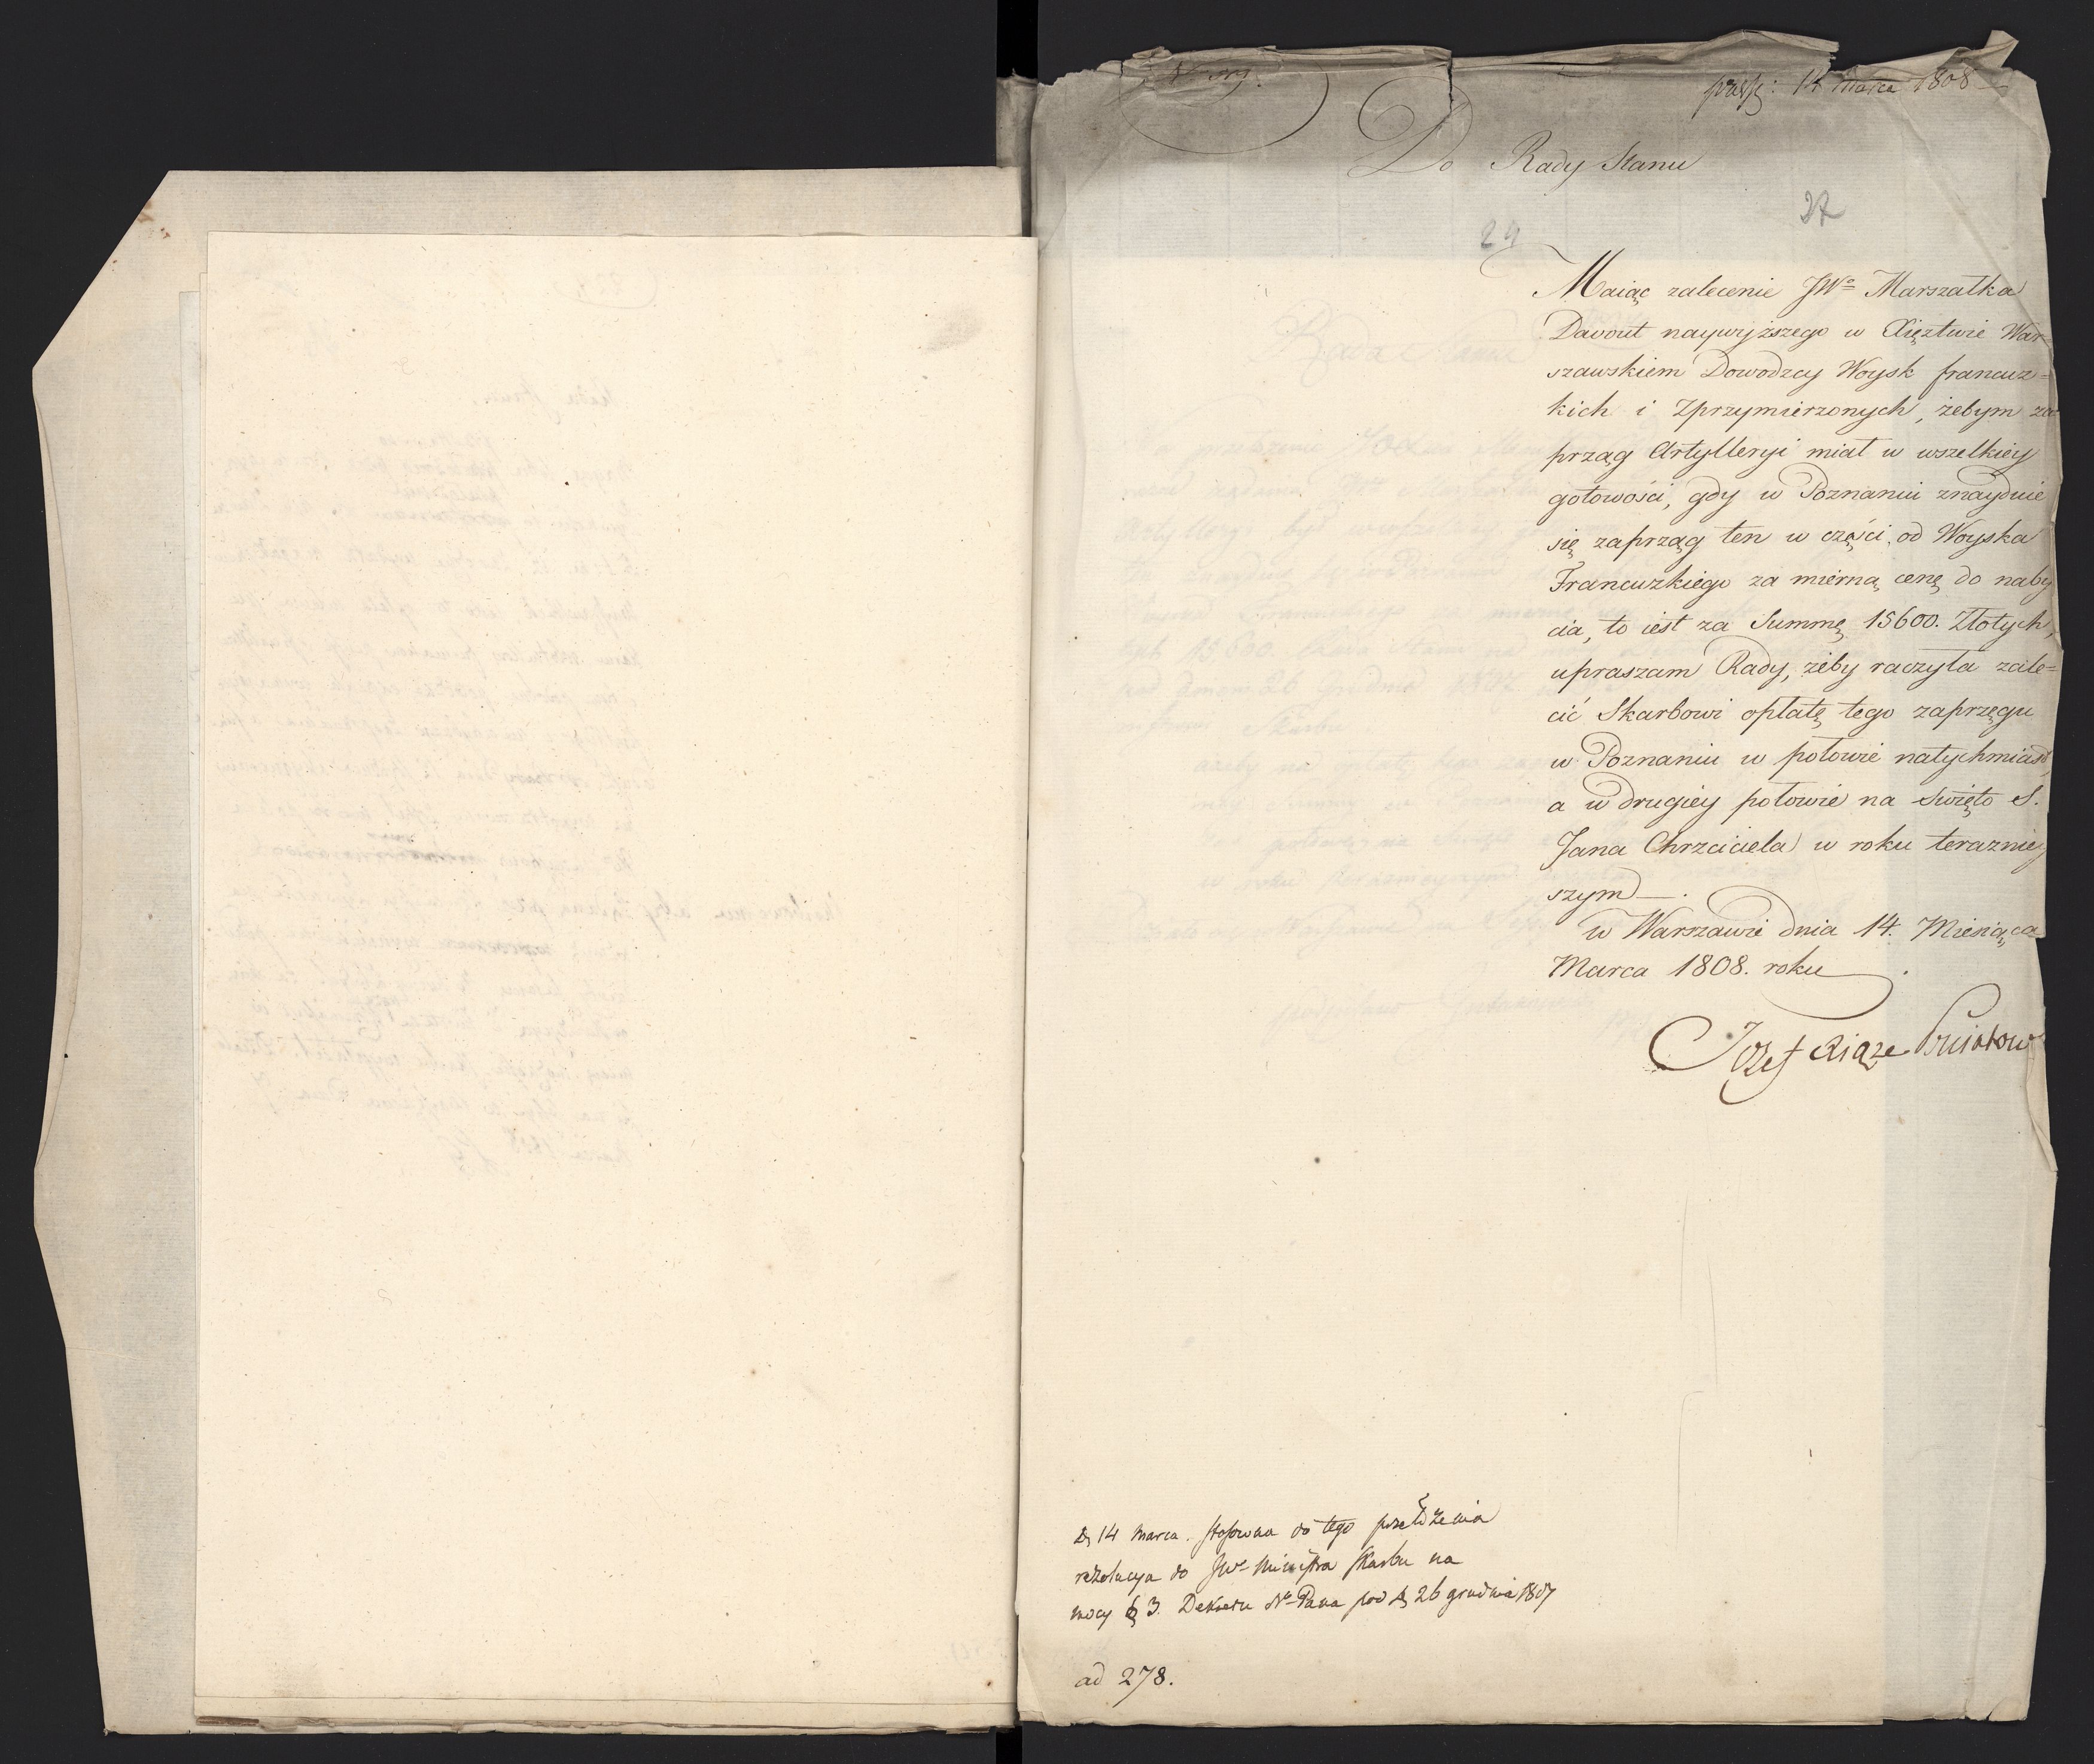 14 Marca 1808
Do Rady Stanu
27
29
Maiąc zalecenie JWo Marszałka
Davout naywyższego w Xięztwie War-
szawskiem Dowodzcy Woysk francuz=
kich i Zprzymierzonych, żebym za
prząg Artylleryi miał w wszelkiey
gotowości, gdy w Poznaniu znayduie
się zaprząg ten w części od Woyska
Francuzkiego za mierną cenę do naby
cia, to iest za Summę 15600. Złotych,
upraszam Rady, żeby raczyła zale=
cić Skarbowi opłatę tego zaprzęgu
w Poznaniu w połowie natychmiast,
a w drugiey połowie na Swięto S.
Jana Chrzciciela w roku terazniey
szym —.
w Warszawie dnia 14. Miesiąca
Marca 1808. roku
Jozef Xiąże Poniatow
D, 14 Marca. Stosowna do tego przełożenia
rezolucya do JWo Ministra Skarbu na
mocy § 3. Dekretu No Pana pod D, 26 grudnia 1807
ad 278.